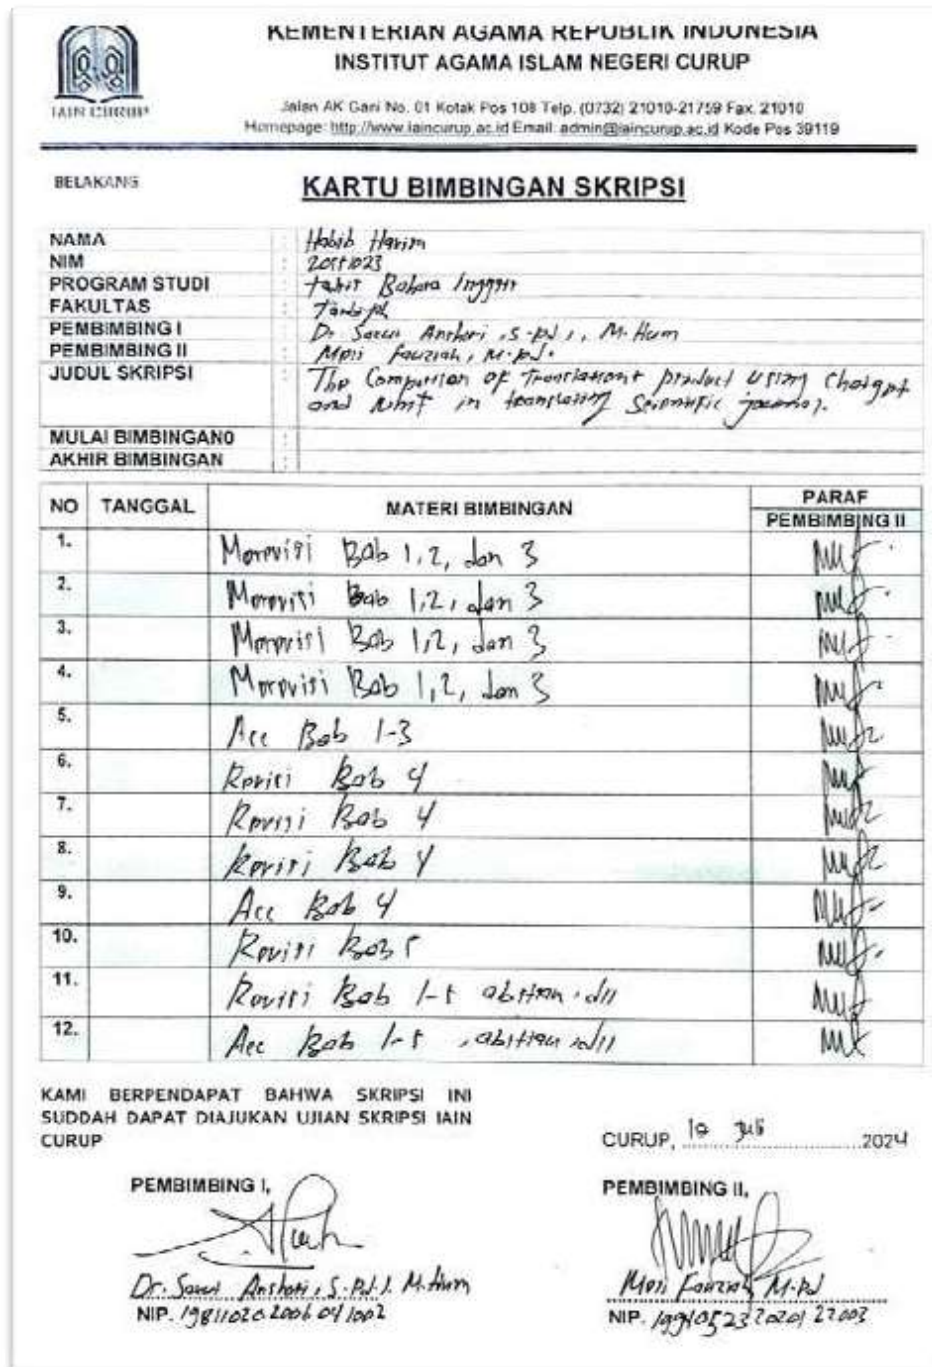 KEMENTERIAN AGAMA REPUBLIK INDONESIA
INSTITUT AGAMA ISLAM NEGERI CURUP
IAIN CURUP
Jalan AK Gani No. 01 Kotak Pos 108 Telp. (0732) 21010-21759 Fax. 21010
Homepage: http://www.iaincurup.ac.id Email: admin@iaincurup.ac.id Kode Pos 39119
BELAKANG
KARTU BIMBINGAN SKRIPSI
NAMA : Habib Harim
NIM :
PROGRAM STUDI : Bahasa Inggris
FAKULTAS : Tarbiyah
PEMBIMBING I : Dr. Anshori, S.Pd.I., M.Hum
PEMBIMBING II : Fauziah, M.Pd.
JUDUL SKRIPSI : The Comparison of product using Chatgpt
and NMT in translating Scientific
MULAI BIMBINGAN0 :
AKHIR BIMBINGAN :
NO TANGGAL MATERI BIMBINGAN PARAF
PEMBIMBING II
1. Merevisi Bab 1, 2, dan 3
2. Merevisi Bab 1, 2, dan 3
3. Merevisi Bab 1, 2, dan 3
4. Merevisi Bab 1, 2, dan 3
5. Acc Bab 1-3
6. Revisi Bab 4
7. Revisi Bab 4
8. Revisi Bab 4
9. Acc Bab 4
10. Revisi Bab 5
11. Revisi Bab 1-5 dll
12. Acc Bab 1-5, dll
KAMI BERPENDAPAT BAHWA SKRIPSI INI
SUDDAH DAPAT DIAJUKAN UJIAN SKRIPSI IAIN
CURUP
CURUP, Juli 2024
PEMBIMBING I, PEMBIMBING II,
Dr. Anshori, S.Pd.I. M.Hum Fauziah, M.Pd
NIP. 198110202006041002 NIP.